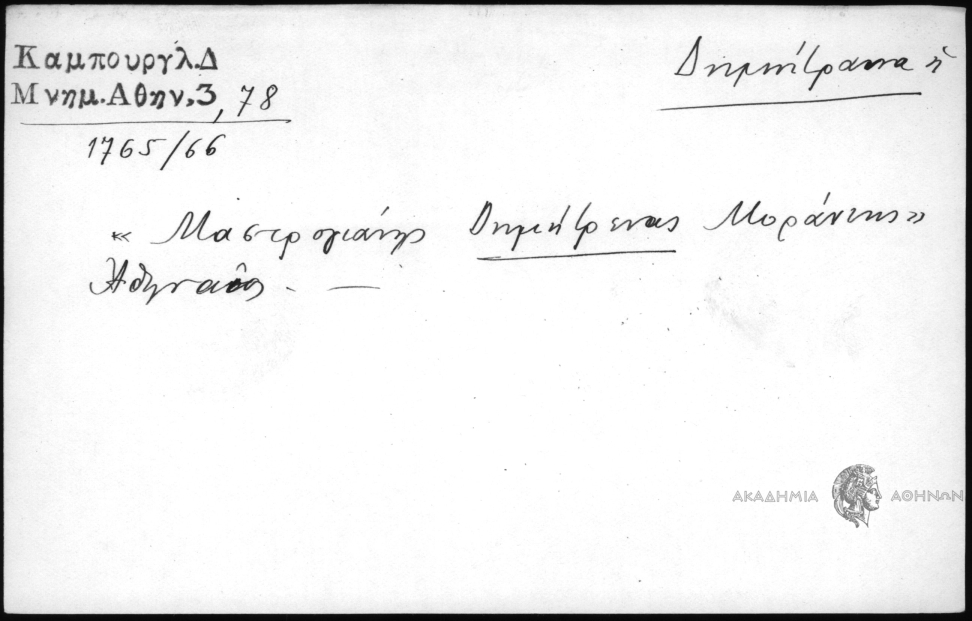 Καμπουργλ.Δ
Μνημ.Αθην.3, 78
1765/66
Δημήτραινα ἡ
« Μαστρογιάνης Δημήτρενας Μοράνεης»
Ἀθηναῖος. —
ΑΚΑΔΗΜΙΑ ΑΘΗΝΩΝ